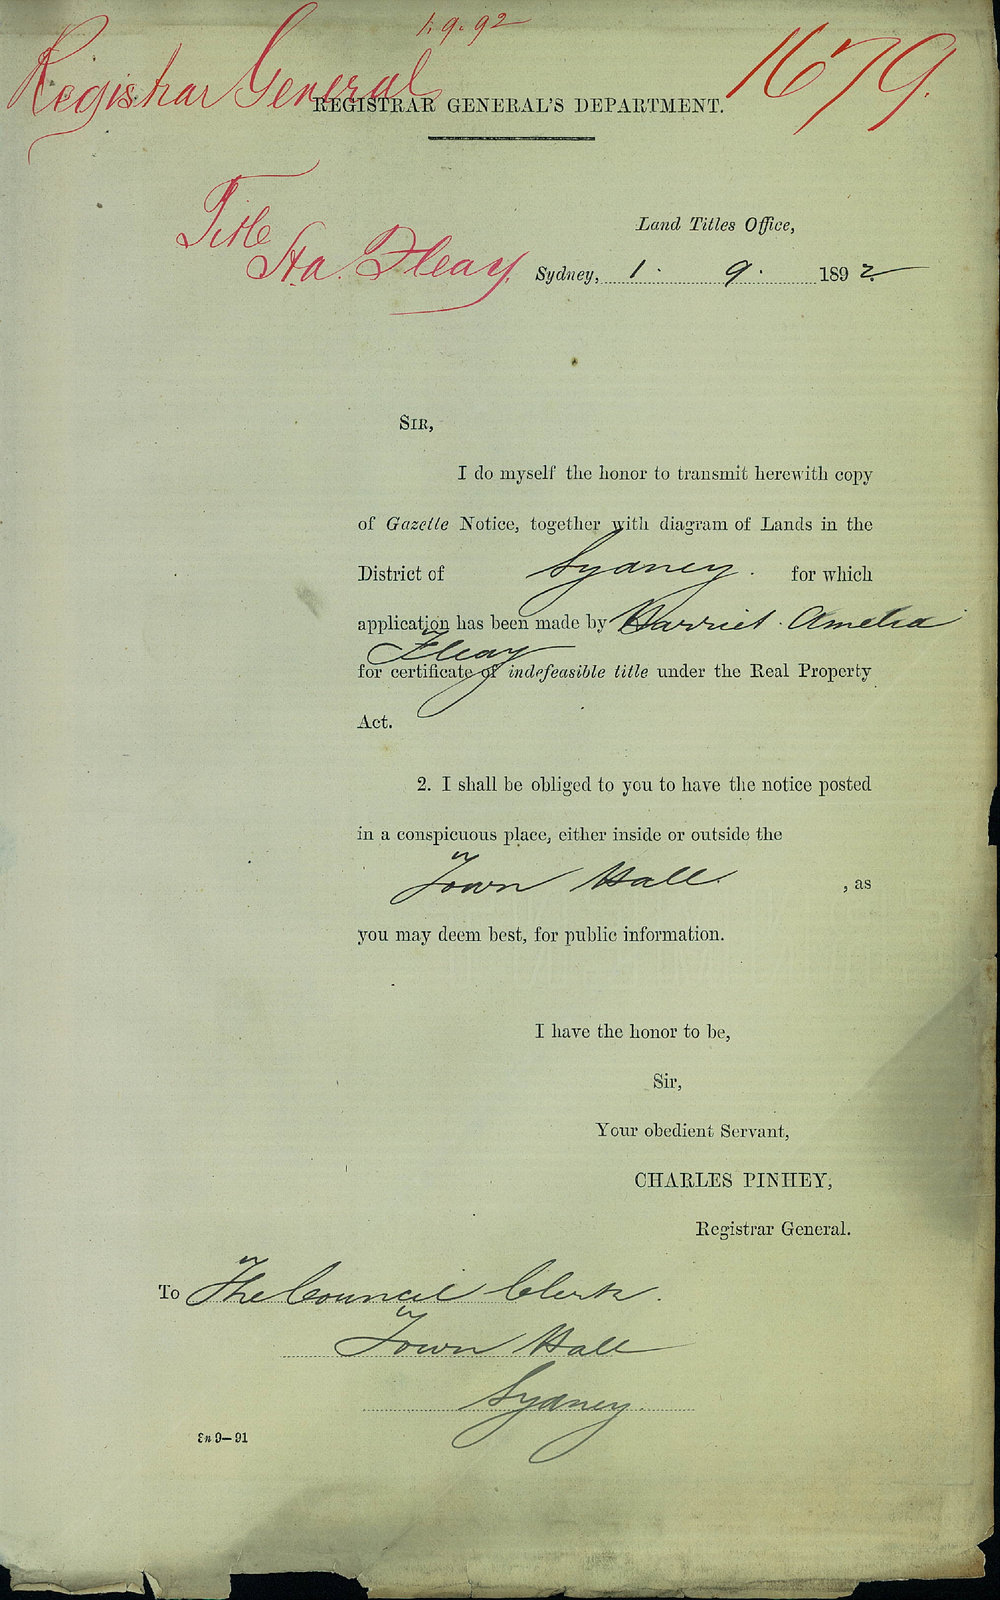 1.9.92
Registrar General
1679.
REGISTRAR GENERAL'S DEPARTMENT.
Title
Ha. Fleay
Land Titles Office,
Sydney, 1. 9. 1892
SIR,
I do myself the honor to transmit herewith copy
of Gazette Notice, together with diagram of Lands in the
District of Sydney. for which
application has been made by Harriet Amelia
Fleay
for certificate of indefeasible title under the Real Property
Act.
2. I shall be obliged to you to have the notice posted
in a conspicuous place, either inside or outside the
Town Hall , as
you may deem best, for public information.
I have the honor to be,
Sir,
Your obedient Servant,
CHARLES PINHEY,
Registrar General.
To The Council Clerk.
Town Hall
Sydney.
9—91